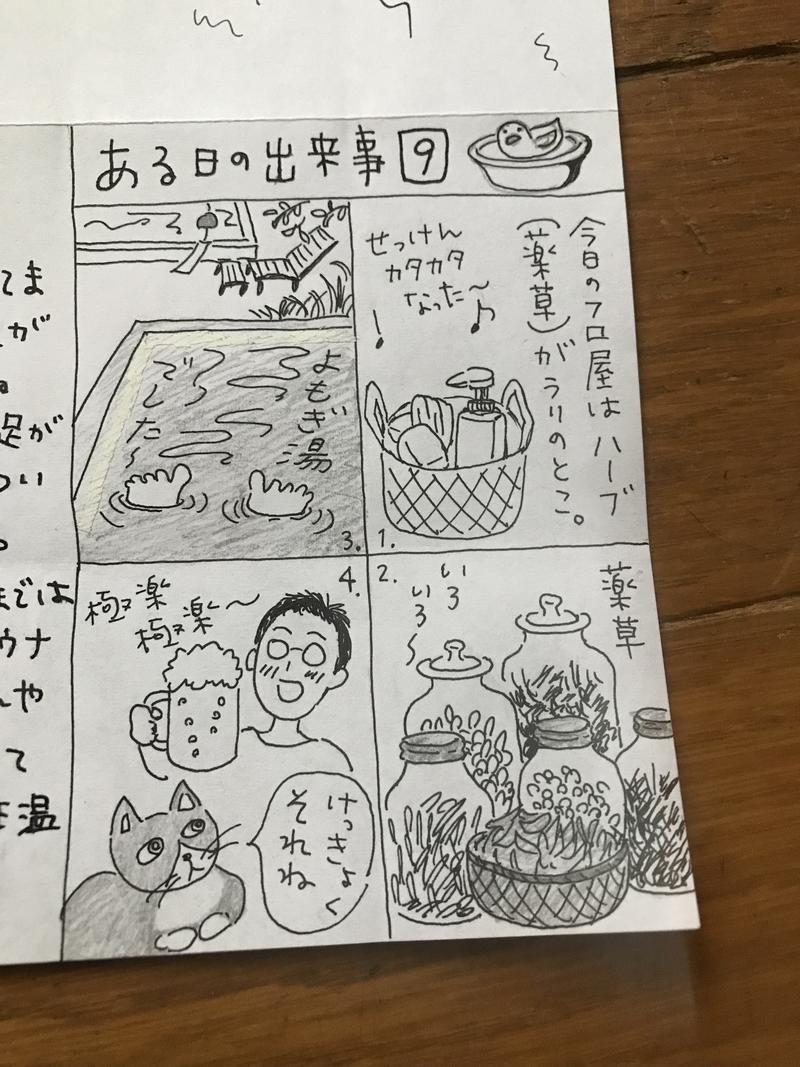 ある日の出来事 9
今日のフロ屋は ハーブ
(薬草)がうりのとこ。
せっけん
カタカタ
なった〜♪
1.
薬草
いろ
いろ〜
2.
よもぎ湯
でした〜
3.
4.
極楽
極楽〜
けっきょく
それね
てま
が
足が
つい
までは
ウナ
や
て
温